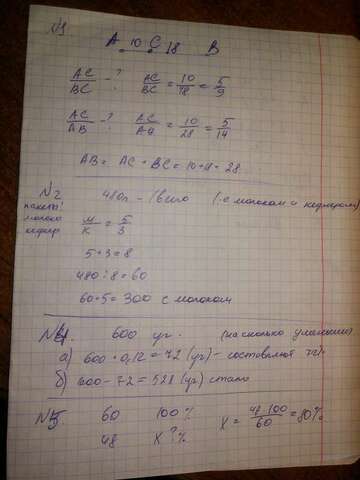 №1
A 10 C 18 B
AC/BC - ? AC/BC = 10/18 = 5/9
AC/AB - ? AC/AB = 10/28 = 5/14
AB = AC + BC = 10+18 = 28
№2 480п - (всего (с молоком и кефиром)
пакеты
молоко м/к = 5/3
кефир
5+3=8
480÷8=60
60·5=300 с молоком
№4. 600 уч. (на сколько уменьши
а) 600·0,12=72 (уч)- составляют
б) 600-72=528 (уч) стало
№5 60 100%
48 x ? % x = 48·100/60 = 80%